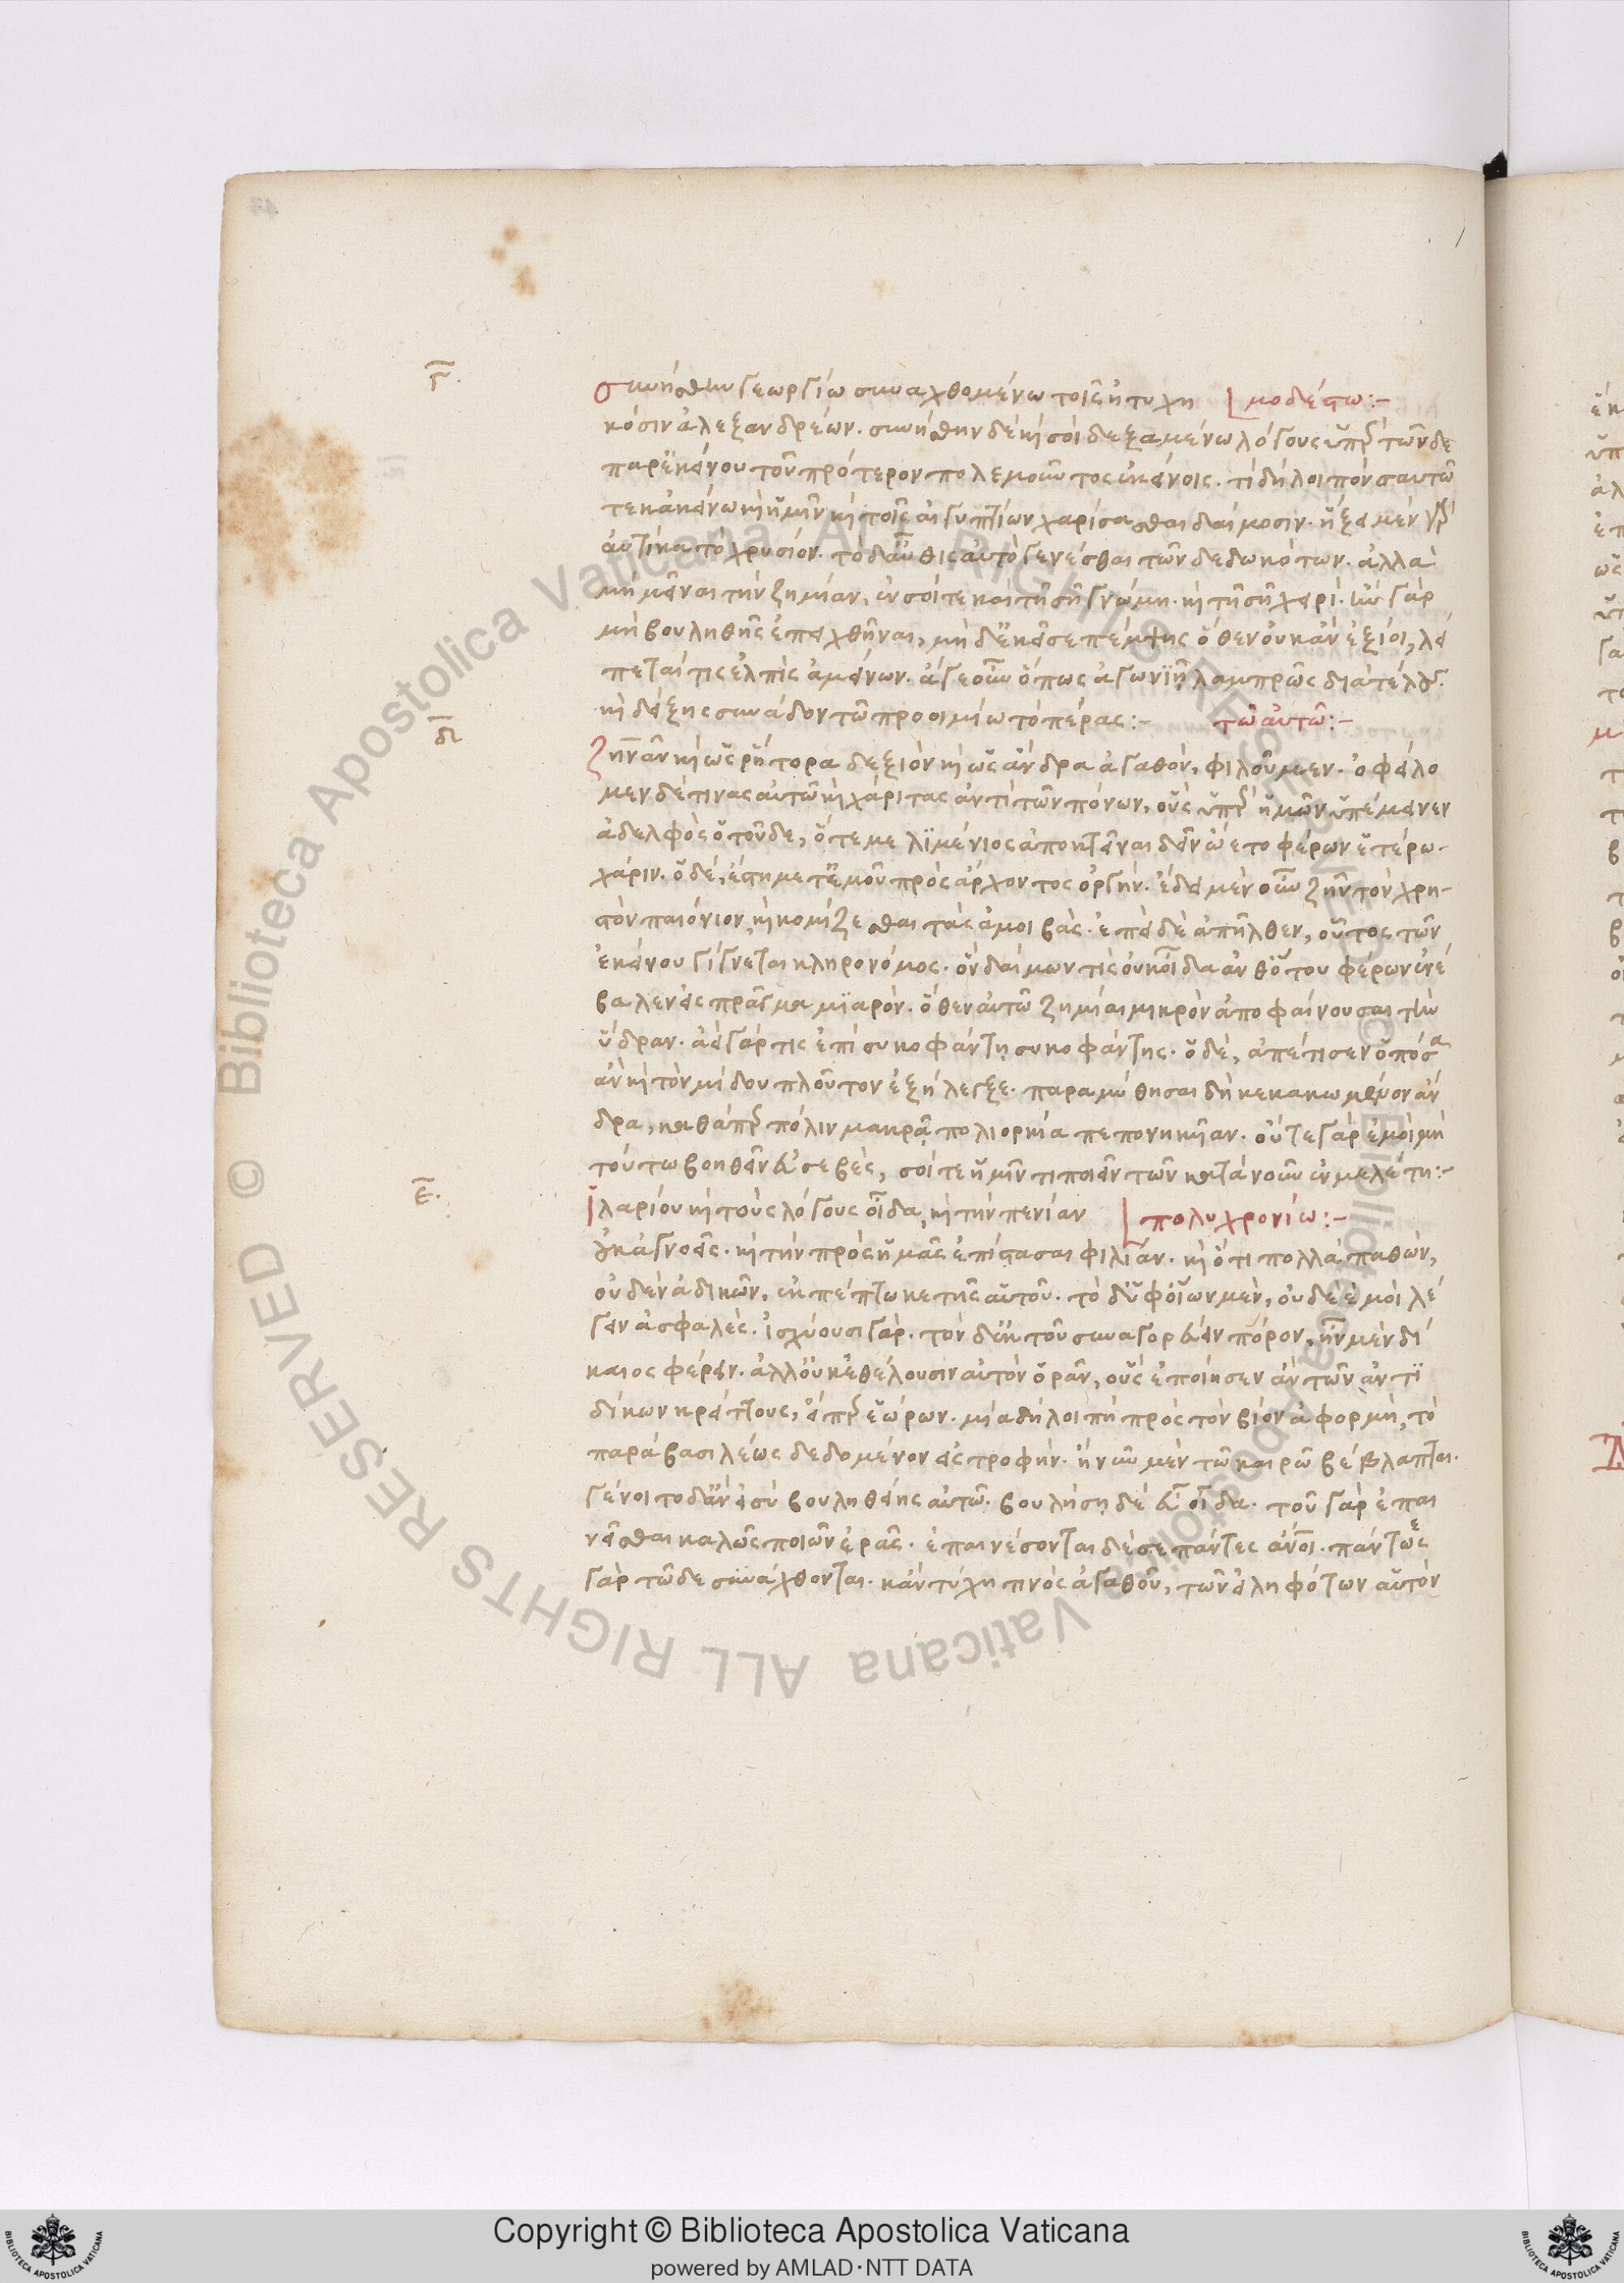 γ.
συνήσθην γεωργίω συναχθομένω τοῖς ἠτυχη μοδέστω:-
κόσιν ἀλεξανδρέων. συνήσθην δὲ κỳ σοὶ δεξαμένω λόγους ὑπὲρ τῶνδε
παρ' ἐκείνου τοῦ πρότερον πολεμοῦντος ἐκείνοις. τί δὴ λοιπὸν σαυτῶ
τε κἀκείνω κỳ ἡμῖν κỳ τοῖς αἰγυπτίων χαρίσασθαι δαίμοσιν. ἥξει μὲν γὰρ
αὐτίκα τὸ χρυσίον. τὸ δ' αὖθις αὐτὸ γενέσθαι τῶν δεδωκότων. ἀλλὰ
μὴ μεῖναι τὴν ζημίαν, ἐν σοί τε καὶ τῆ σῆ γνώμη. κỳ τῆ σῆ χειρί. ἢν γὰρ
μὴ βουληθῆς ἐπαχθῆναι, μὴ δ' ἐκεῖσε πέμψης ὅθεν οὐκ ἂν ἐξίοι, λεί
πεταί τις ἐλπὶς ἀμείνων. ἄγε οὖν ὅπως ἀγωνιῆ λαμπρῶς διὰ τέλους.
κỳ δείξης συνάδον τῶ προοιμίω τὸ πέρας:- τῶ αὐτῶ:-
δ
ζῆναν κỳ ὡς ῥήτορα δεξιὸν κỳ ὡς ἄνδρα ἀγαθὸν, φιλοῦμεν. ὀφείλο
μεν δέ τινας αὐτῶ κỳ χάριτας ἀντὶ τῶν πόνων, οὓς ὑπὲρ ἡμῶν ὑπέμεινεν
ἀδελφὸς ὁ τοῦδε, ὅτε με λιμένιος ἀποκτεῖναι δεῖν ὤετο φέρων ἑτέρω
χάριν. ὁ δὲ, ἔστη με τ' ἐμοῦ πρὸς ἄρχοντος ὀργήν. ἔδει μὲν οὖν ζῆν τὸν χρη-
στὸν παιόνιον, κỳ κομίζεσθαι τὰς ἀμοιβάς. ἐπεὶ δὲ ἀπῆλθεν, οὗτος τῶν
ἐκείνου γίγνεται κληρονόμος. ὃν δαίμων τίς οὐκ οἶδα ἀνθ' ὅτου φέρων ἐνέ
βαλεν εἰς πρᾶγμα μιαρόν. ὅθεν αὐτῶ ζημίαι μικρὸν ἀποφαίνουσαι τὴν
ὕδραν. ἀεὶ γάρ τις ἐπὶ συκοφάντη συκοφάντης. ὁ δὲ, ἀπέτισεν ὁπόσα
ἂν κỳ τὸν μίδου πλοῦτον ἐξήλεγξε. παραμύθησαι δὴ κεκακωμένον ἄν
δρα, καθάπερ πόλιν μακρᾶ πολιορκία πεπονηκυῖαν. οὔτε γὰρ ἐμοὶ μὴ
τούτω βοηθεῖν εὐσεβές, σοί τε ἡμῖν τι ποιεῖν τῶν κατὰ νοῦν ἐν μελέτη:-
ε.
ἱλαρίου κỳ τοὺς λόγους οἶδα, κỳ τὴν πενίαν πολυχρονίω:-
οὐκ ἀγνοεῖς. κỳ τὴν πρὸς ἡμᾶς ἐπίστασαι φιλίαν. κỳ ὅτι πολλὰ παθὼν,
οὐδὲν ἀδικῶν, ἐκπέπτωκε τῆς αὑτοῦ. τὸ δ' ὑφ' οἵων μὲν, οὐδὲ ἐμοὶ λέ
γειν ἀσφαλές. ἰσχύουσι γάρ. τὸν δ' ἐκ τοῦ συναγορεύειν πόρον, ἦν μὲν δί
καιος φέρειν. ἀλλ' οὐκ ἐθέλουσιν αὐτὸν ὁρᾶν, οὓς ἐποίησεν ἂν τῶν ἀντι
δίκων κρείττους, εἴπερ ἑώρων. μία δὴ λοιπὴ πρὸς τὸν βίον ἀφορμὴ, τὸ
παρὰ βασιλέως δεδομένον εἰς τροφήν. ἣ νῦν μὲν τῶ καιρῶ βέβλαπται.
γένοιτο δ' ἂν εἰ σὺ βουληθείης αὐτῶ. βουλήση δὲ εὖ οἶδα. τοῦ γὰρ ἐπαι
νεῖσθαι καλῶς ποιῶν ἐρᾶς. ἐπαινέσονται δέ σε πάντες ἄνοι. πάντες
γὰρ τῶδε συνάχθονται. κἂν τύχη τινὸς ἀγαθοῦ, τῶν εἰληφότων αὑτὸν
Copyright © Biblioteca Apostolica Vaticana
powered by AMLAD·NTT DATA